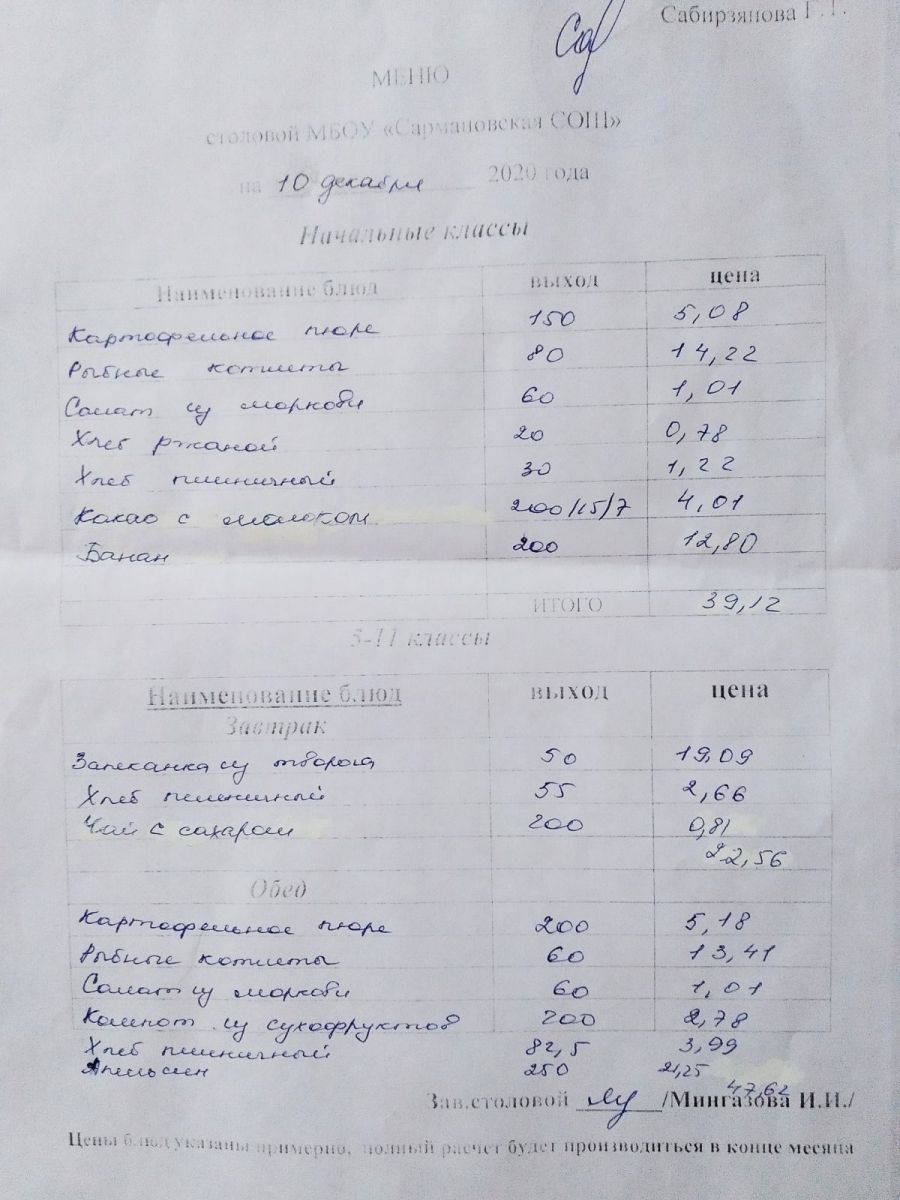 Сабирзянова Г.Г.
МЕНЮ
столовой МБОУ «Сармановская СОШ»
на 10 декабря 2020 года
Начальные классы
Наименование блюд выход цена
Картофельное пюре 150 5,08
Рыбные котлеты 80 14,22
Салат из моркови 60 1,01
Хлеб ржаной 20 0,78
Хлеб пшеничный 30 1,22
Какао с молоком 200/15/7 4,01
Банан 200 12,80
ИТОГО 39,12
5-11 классы
Наименование блюд выход цена
Завтрак
Запеканка из творога 50 19,09
Хлеб пшеничный 55 2,66
Чай с сахаром 200 0,81
22,56
Обед
Картофельное пюре 200 5,18
Рыбные котлеты 60 13,41
Салат из моркови 60 1,01
Компот из сухофруктов 200 2,78
Хлеб пшеничный 82,5 3,99
Апельсин 250 21,25
47,62
Зав.столовой /Мингазова И.И./
Цены блюд указаны примерно, полный расчет будет производиться в конце месяца